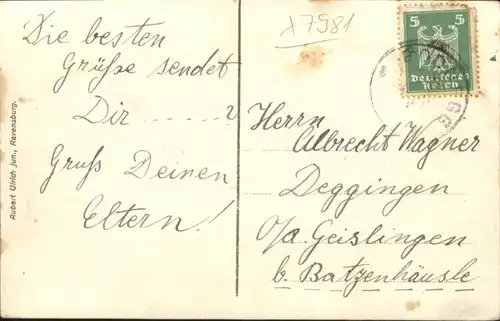 λ7981
Die besten
Grüße sendet
Dir ......... ?
Gruß Deinen
Eltern!
5 5
Deutsches
Reich
Herrn
Albrecht Wagner
Deggingen
O/A. Geislingen
b. Batzenhäusle
Aubert Ulrich jun., Ravensburg.